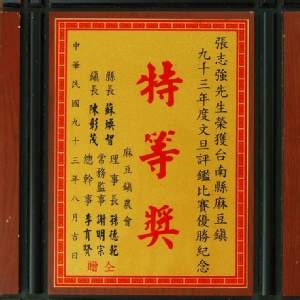 張志強先生榮獲台南縣麻豆鎮
九十三年度文旦評鑑比賽優勝紀念
特等獎
麻豆鎮農會
理事長 孫德乾
常務監事 謝明宗
總幹事 李育賢
縣長 蘇煥智
鎮長 陳彰茂
仝贈
中華民國九十三年八月吉日